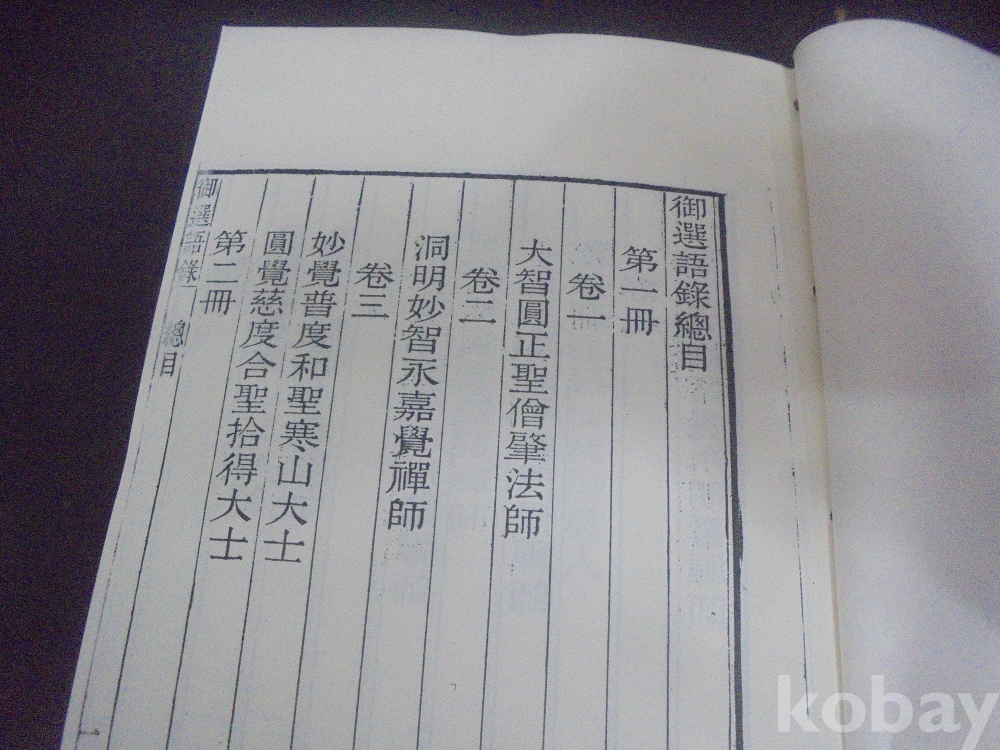 御選語錄總目
第一冊
卷一
大智圓正聖僧肇法師
卷二
洞明妙智永嘉覺禪師
卷三
妙覺普度和聖寒山大士
圓覺慈度合聖拾得大士
第二冊
御選語錄 總目
一
kobay